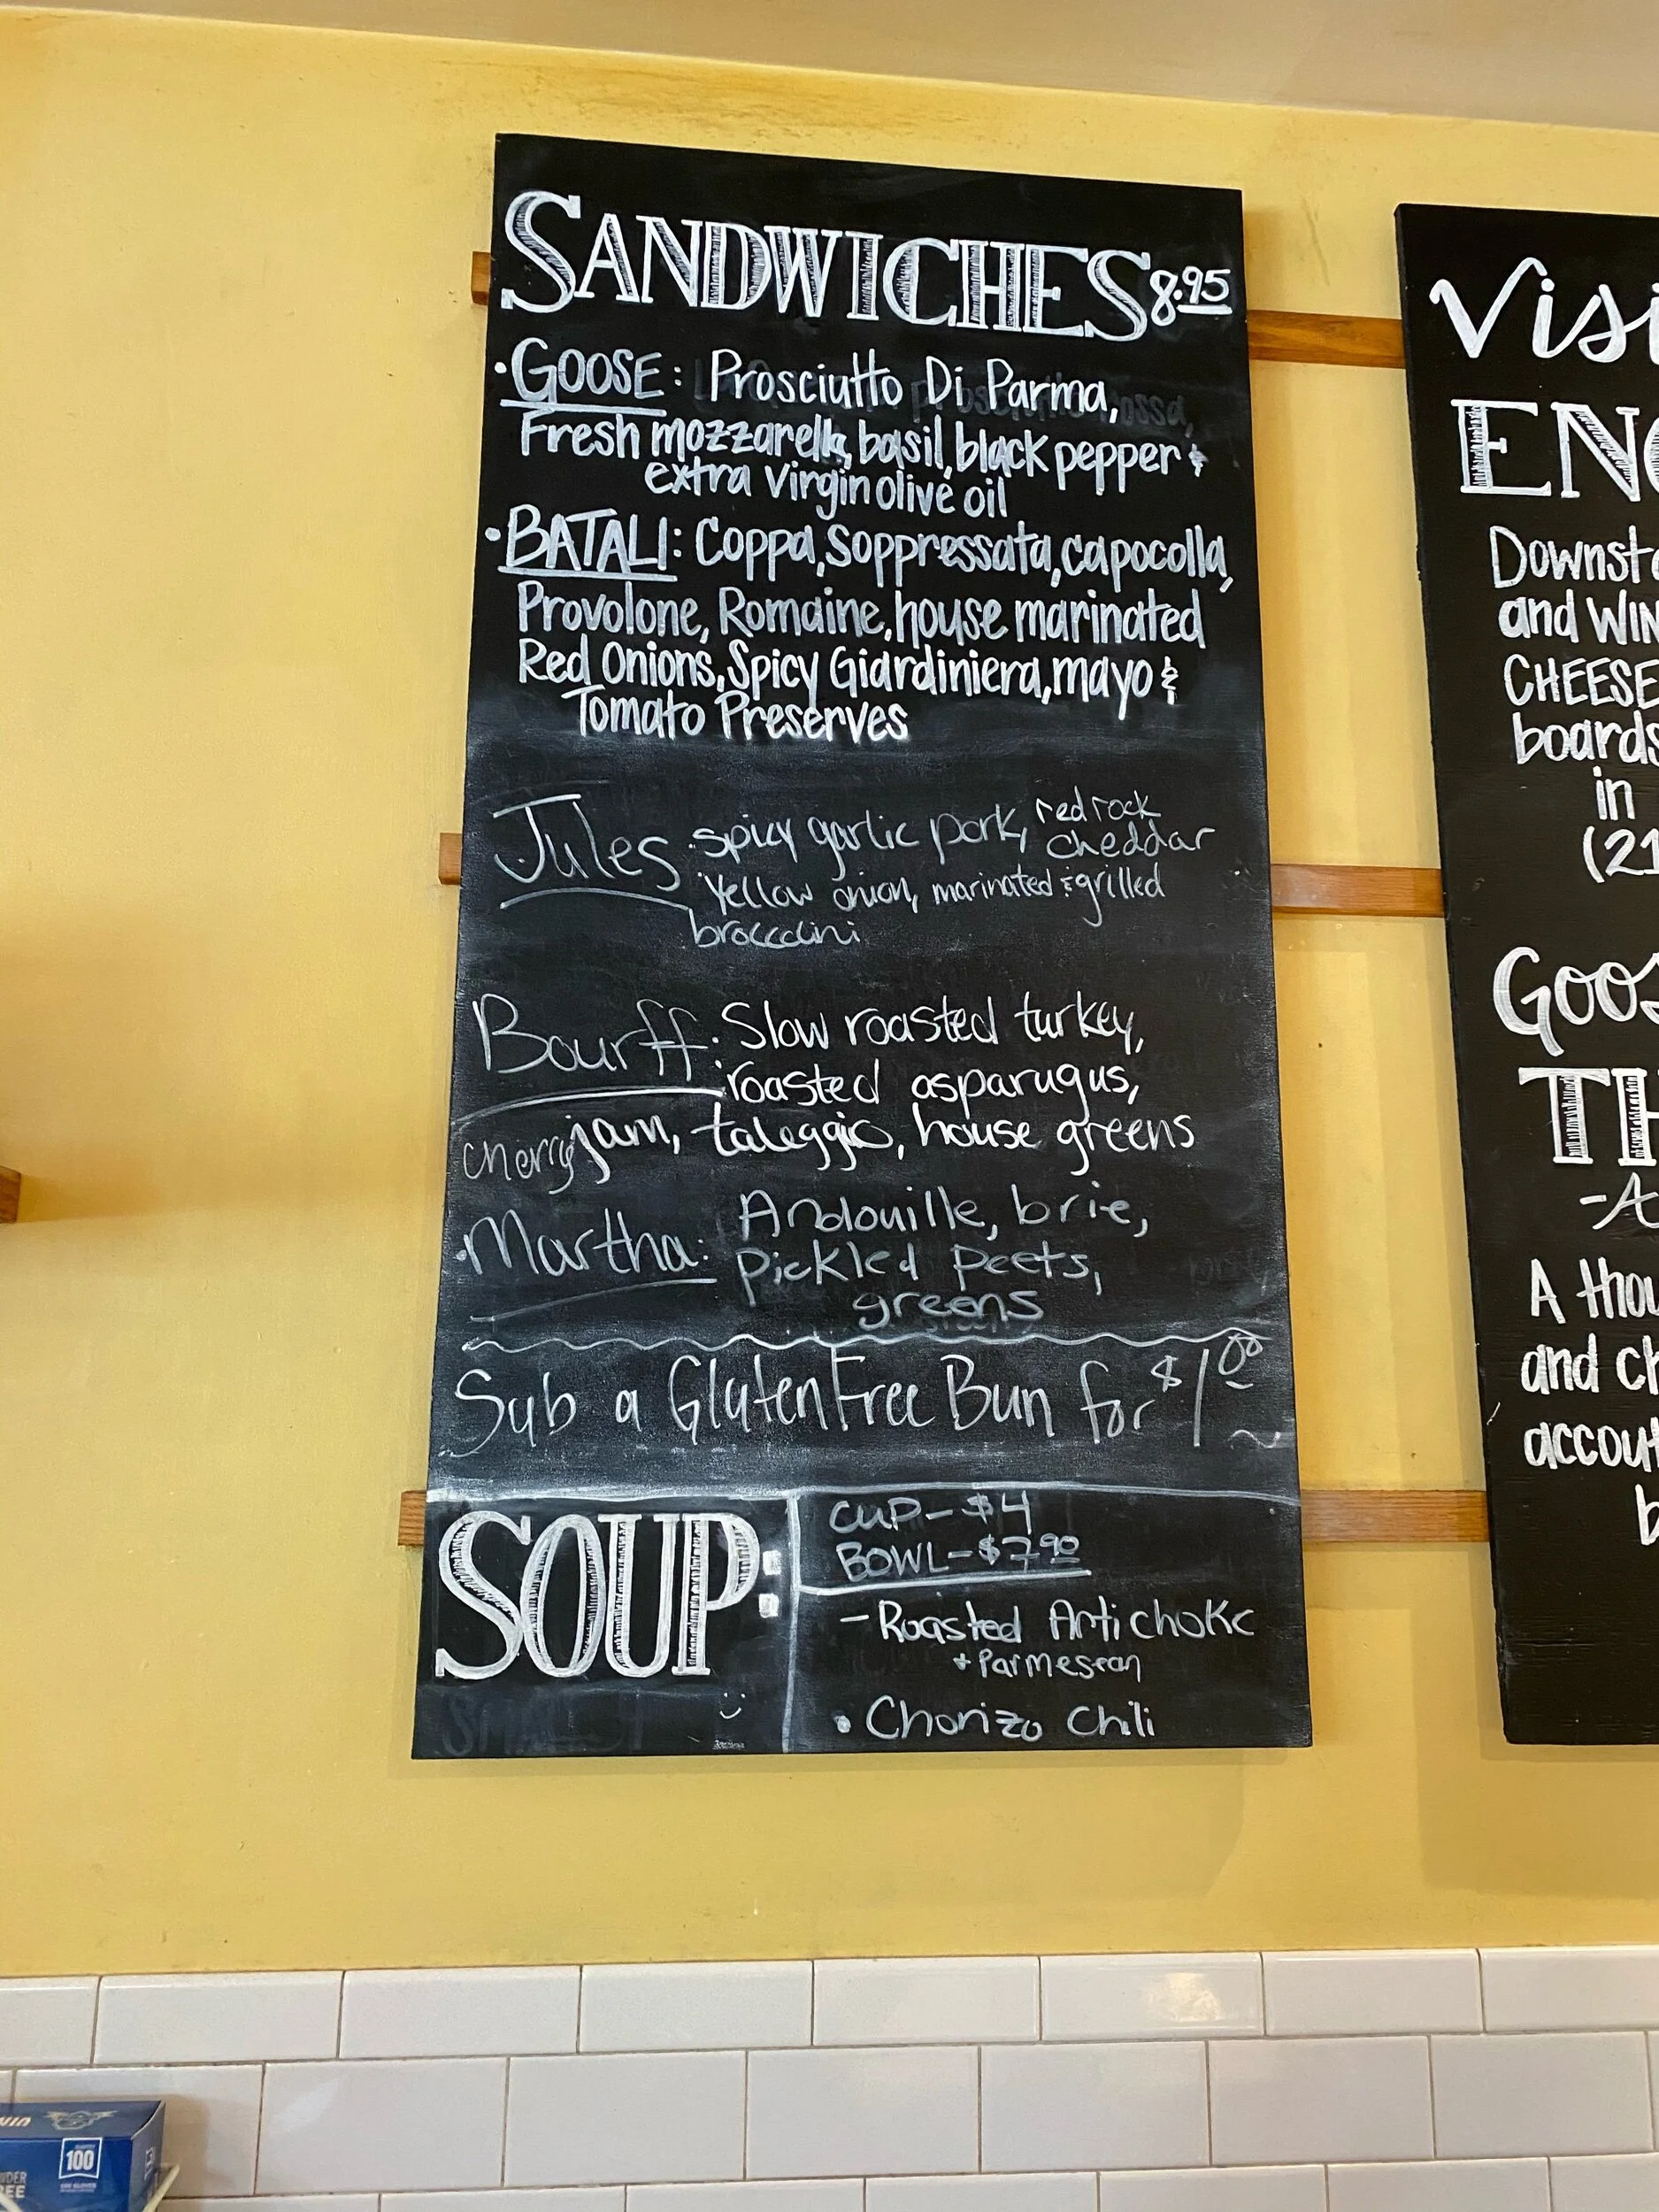 SANDWICHES 8.95
• GOOSE: Prosciutto Di Parma,
Fresh mozzarella, basil, black pepper &
extra virgin olive oil
• BATALI: Coppa, Soppressata, capocolla,
Provolone, Romaine, house marinated
Red Onions, Spicy Giardiniera, mayo &
Tomato Preserves
Jules: spicy garlic pork, red rock
cheddar
yellow onion, marinated & grilled
broccolini
Bourff: Slow roasted turkey,
roasted asparugus,
cherry jam, taleggio, house greens
• Martha: Andouille, brie,
Pickled Peets,
greens
Sub a Gluten Free Bun for $1.00
SOUP:
CUP- $4
BOWL- $7.90
- Roasted Artichoke
+ Parmesean
• Chorizo Chili
Visi
ENO
Downst
and WIN
CHEESE
boards
in
(21
GOOS
TH
-A
A thou
and ch
accout
b
100